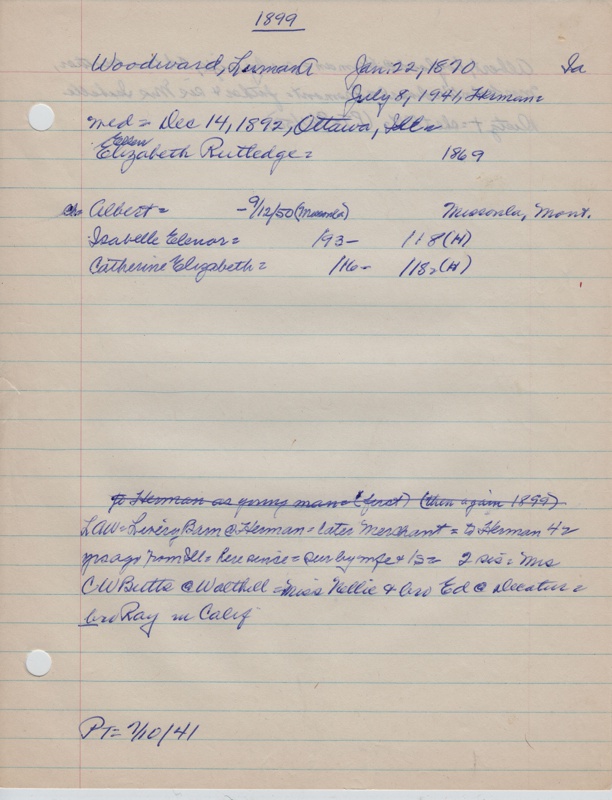 1899
Woodward, Luman A Jan. 22, 1870 Ia
July 8, 1941, Herman=
med= Dec 14, 1892, Ottawa, Ill=
Ellen
Elizabeth Rutledge= 1869
Ch= Albert= -9/12/50 (Missoula) Missoula, Mont.
Isabelle Elenor= /93- /18(H)
Catherine Elizabeth= /16- /18 (H)
to Herman as young man= (first) (then again 1899)
LAW= Livery Barn @ Herman= later Merchant= to Herman 42
yrs ago from Ill= here since= sur by wife & 1s= 2 sis= Mrs
C W Butts @ Walthill= Miss Nellie & bro Ed @ Decatur=
bro Ray in Calif
PT= 7/10/41